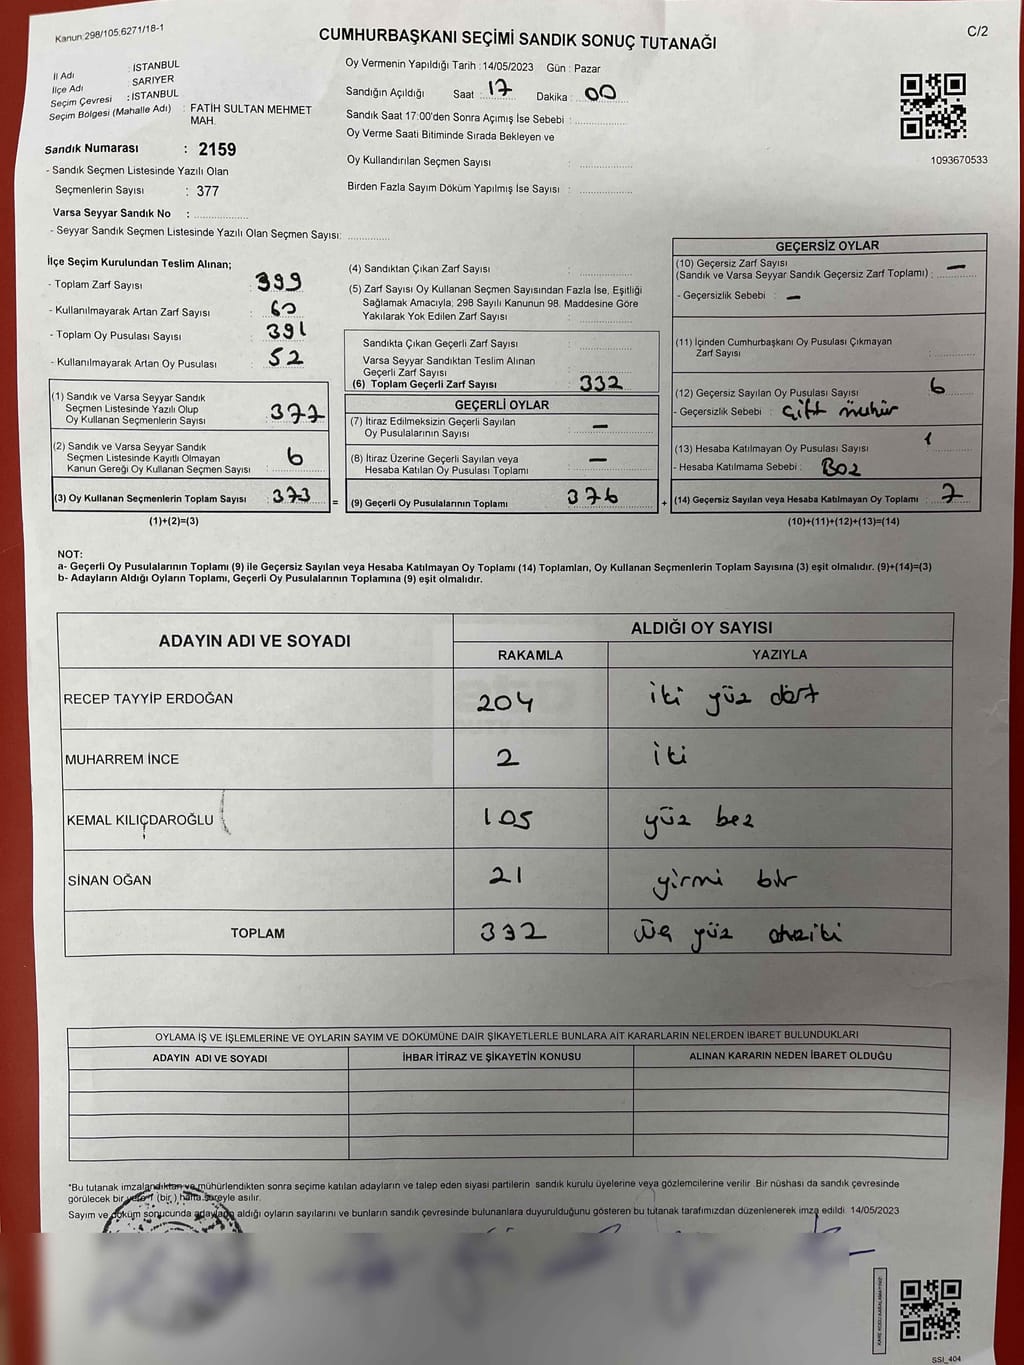 Kanun:298/105,6271/18-1
C/2
CUMHURBAŞKANI SEÇİMİ SANDIK SONUÇ TUTANAĞI
İl Adı : İSTANBUL
İlçe Adı : SARIYER
Seçim Çevresi : İSTANBUL
Seçim Bölgesi (Mahalle Adı) : FATİH SULTAN MEHMET MAH.
Sandık Numarası : 2159
- Sandık Seçmen Listesinde Yazılı Olan
Seçmenlerin Sayısı : 377
Varsa Seyyar Sandık No :
- Seyyar Sandık Seçmen Listesinde Yazılı Olan Seçmen Sayısı:
Oy Vermenin Yapıldığı Tarih :14/05/2023 Gün : Pazar
Sandığın Açıldığı Saat : 17 Dakika : 00
Sandık Saat 17:00'den Sonra Açımış İse Sebebi :
Oy Verme Saati Bitiminde Sırada Bekleyen ve
Oy Kullandırılan Seçmen Sayısı :
Birden Fazla Sayım Döküm Yapılmış İse Sayısı :
1093670533
İlçe Seçim Kurulundan Teslim Alınan;
- Toplam Zarf Sayısı : 399
- Kullanılmayarak Artan Zarf Sayısı : 60
- Toplam Oy Pusulası Sayısı : 391
- Kullanılmayarak Artan Oy Pusulası : 52
(1) Sandık ve Varsa Seyyar Sandık
Seçmen Listesinde Yazılı Olup
Oy Kullanan Seçmenlerin Sayısı : 377
(2) Sandık ve Varsa Seyyar Sandık
Seçmen Listesinde Kayıtlı Olmayan
Kanun Gereği Oy Kullanan Seçmen Sayısı : 6
(3) Oy Kullanan Seçmenlerin Toplam Sayısı : 373 =
(1)+(2)=(3)
(4) Sandıktan Çıkan Zarf Sayısı :
(5) Zarf Sayısı Oy Kullanan Seçmen Sayısından Fazla İse, Eşitliği
Sağlamak Amacıyla; 298 Sayılı Kanunun 98. Maddesine Göre
Yakılarak Yok Edilen Zarf Sayısı :
Sandıkta Çıkan Geçerli Zarf Sayısı :
Varsa Seyyar Sandıktan Teslim Alınan
Geçerli Zarf Sayısı :
(6) Toplam Geçerli Zarf Sayısı : 332
GEÇERLİ OYLAR
(7) İtiraz Edilmeksizin Geçerli Sayılan
Oy Pusulalarının Sayısı : —
(8) İtiraz Üzerine Geçerli Sayılan veya
Hesaba Katılan Oy Pusulası Toplamı : —
(9) Geçerli Oy Pusulalarının Toplamı : 376 +
GEÇERSİZ OYLAR
(10) Geçersiz Zarf Sayısı
(Sandık ve Varsa Seyyar Sandık Geçersiz Zarf Toplamı) : —
- Geçersizlik Sebebi : —
(11) İçinden Cumhurbaşkanı Oy Pusulası Çıkmayan
Zarf Sayısı :
(12) Geçersiz Sayılan Oy Pusulası Sayısı : 6
- Geçersizlik Sebebi : Çift mühür
(13) Hesaba Katılmayan Oy Pusulası Sayısı : 1
- Hesaba Katılmama Sebebi : Boz
(14) Geçersiz Sayılan veya Hesaba Katılmayan Oy Toplamı : 7
(10)+(11)+(12)+(13)=(14)
NOT:
a- Geçerli Oy Pusulalarının Toplamı (9) ile Geçersiz Sayılan veya Hesaba Katılmayan Oy Toplamı (14) Toplamları, Oy Kullanan Seçmenlerin Toplam Sayısına (3) eşit olmalıdır. (9)+(14)=(3)
b- Adayların Aldığı Oyların Toplamı, Geçerli Oy Pusulalarının Toplamına (9) eşit olmalıdır.
ADAYIN ADI VE SOYADI
ALDIĞI OY SAYISI
RAKAMLA YAZIYLA
RECEP TAYYİP ERDOĞAN 204 iki yüz dört
MUHARREM İNCE 2 iki
KEMAL KILIÇDAROĞLU 105 yüz bez
SİNAN OĞAN 21 yirmi bir
TOPLAM 332 üç yüz otuziki
OYLAMA İŞ VE İŞLEMLERİNE VE OYLARIN SAYIM VE DÖKÜMÜNE DAİR ŞİKAYETLERLE BUNLARA AİT KARARLARIN NELERDEN İBARET BULUNDUKLARI
ADAYIN ADI VE SOYADI İHBAR İTİRAZ VE ŞİKAYETİN KONUSU ALINAN KARARIN NEDEN İBARET OLDUĞU
*Bu tutanak imzalandıktan ve mühürlendikten sonra seçime katılan adayların ve talep eden siyasi partilerin sandık kurulu üyelerine veya gözlemcilerine verilir .Bir nüshası da sandık çevresinde
görülecek bir yere 1 (bir ) hafta süreyle asılır.
Sayım ve döküm sonucunda adayların aldığı oyların sayılarını ve bunların sandık çevresinde bulunanlara duyurulduğunu gösteren bu tutanak tarafımızdan düzenlenerek imza edildi. 14/05/2023
KARE KODU KARALAMAYINIZ
SSI_404